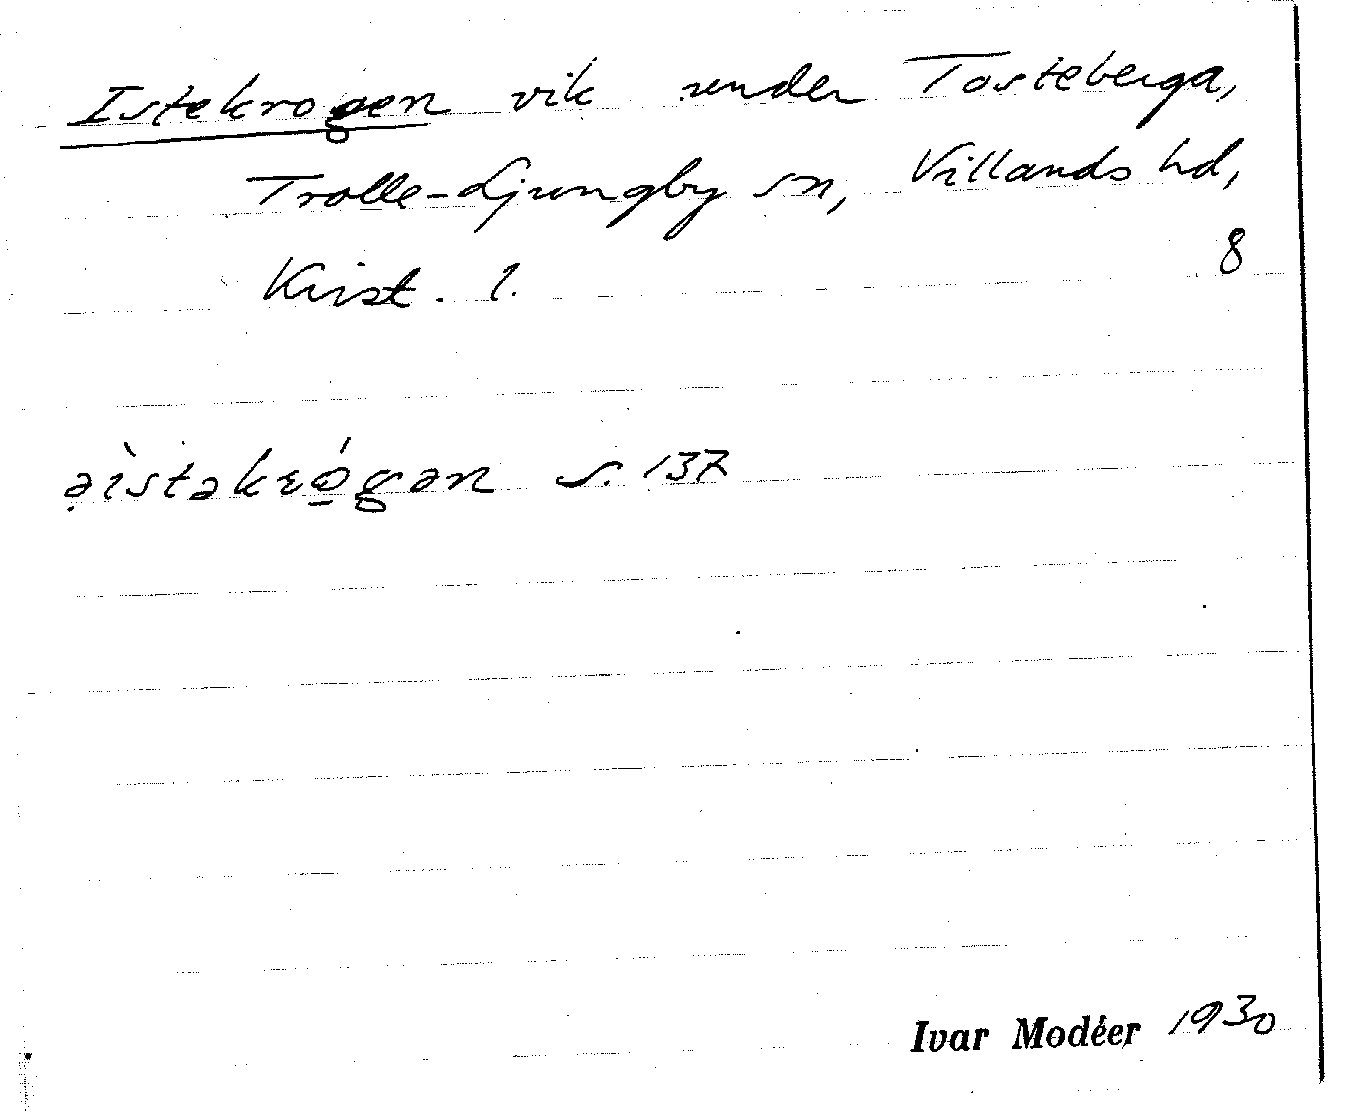 Istekrogen vik under Tosteberga,
Trolle-Ljungby sn, Villands hd,
Krist. l. 8
ə̣ìstəkrǫ́gən s. 137
Ivar Modéer 1930